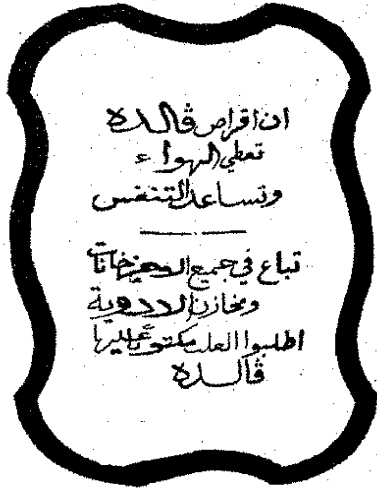 ان اقراص ڤالده
تعطي الهواء
وتساعد التنفس
تباع في جميع الاجزخانات
ومخازن الادوية
اطلبوا العلب مكتوبا عليها
ڤالده